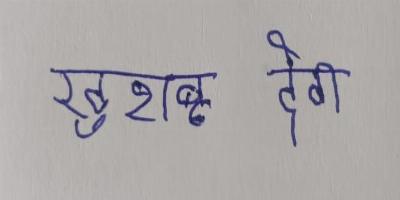 खुशबू देवी